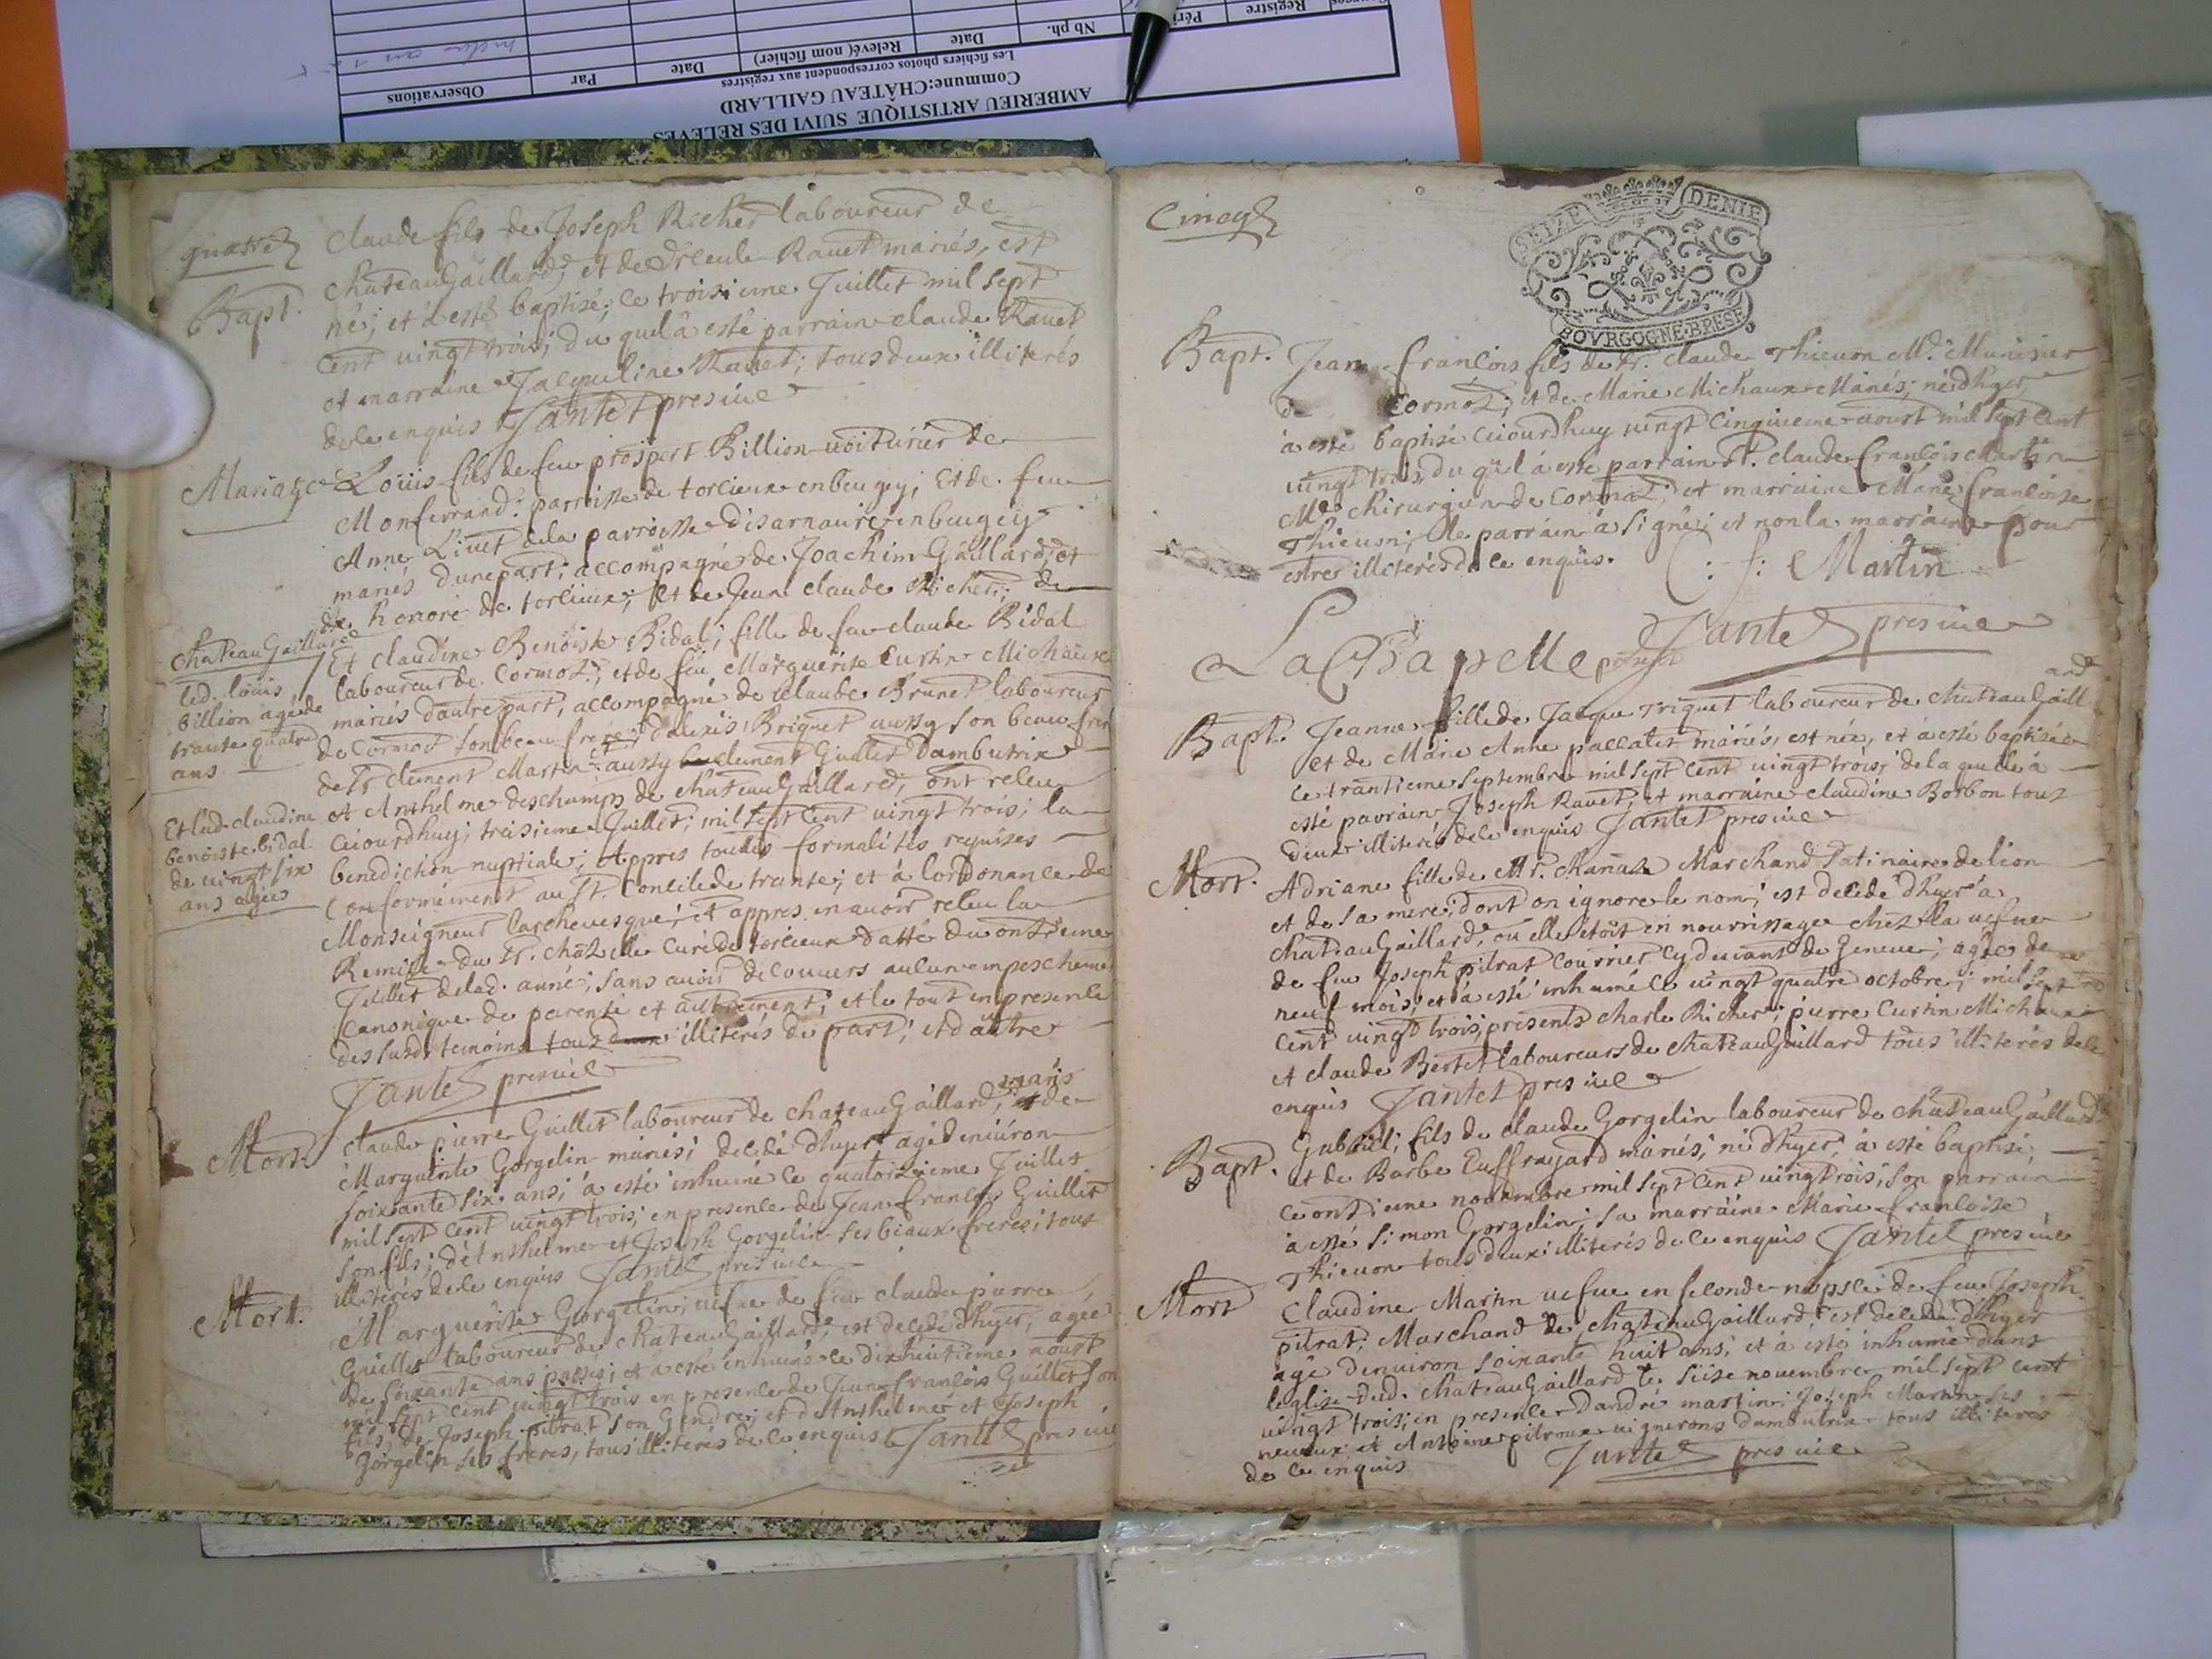 AMBERIEU ARTISTIQUE SUIVI DES RELEVES
Commune:CHÂTEAU GAILLARD
Les fichiers photos correspondent aux registres
Registre
Nb ph.
Date
Relevé( nom fichier)
Date
Par
Observations
quatre
Bapt.
Claude fils de Joseph Richer laboureur de
chateauGaillard, et de Ravet mariés, est
né, et à esté baptisé, ce troisieme Juillet mil sept
cent vingt trois; du quel â esté parrain claude Ravet
et marraine Jacqueline Ravet; tous deux illiterés
de ce enquis Jantet presvic
Mariage
Loüis fils de feu prospert Billion voiturier de
Monferrand: parroisse de torcieux en beugey; Et de feue
Anne Livet dela parroisse disarnaire en beugey
mariés dune part; accompagné de Joachim Gaillard, et
de honoré de torcieux; et de Jean claude Richer; de
chateauGaillard
Et claudine Benoiste Bidal; fille de feu claude Bidal
laboureur de Cormoz; et de feu Marguerite Curtin Michaux
mariés dautre part, accompagné de claude Brunet laboureur
de Cormoz son beau frere dalexis Briquet aussy son beau frere
de Sr clement Martin aussy clement Guillet Dambutrix
et Anthelme deschamps de chateauGaillard, ont receu
ciourdhuy; troisieme Juillet; mil sept cent vingt trois; la
benediction nuptiale; Appres toutes formalités requises
Conformément au St. Concile de trante; et à lordonance de
Monseigneur Larchevesque; et appres en avoir receu la
Remise du Sr. curé de torcieux datté du onzieme
Juillet delad. année, sans avoir decouvers aucun empeschement
Canonique de parenté et autrement; et le tout en presence
des susds. temoins tous illiterés de part; et dautre
Jantet presvic
led. loüis
Billion agé de
trante quatre
ans
Et lad. claudine
benoiste bidal
de vingt six
ans agée
Mort.
claude pierre Guillet laboureur de chateauGaillard, maris de
Marguerite Gorgelin mariés; decedé dhyer agé deniuron
soixante six ans; â esté inhumé le quatorzieme Juillet
mil sept cent vingt trois; en presence de Jean francois Guillet
son fils; dAnthelme et Joseph Gorgelin ses beaux freres; tous
illiterés de ce enquis Jantet presvic
Mort.
Marguerite Gorgelin; vefue de feu claude pierre
Guillet laboureur de chateauGaillard, est decedé dhyer, agée
de soixante ans passés; et à esté inhumé ce dixhuitieme aoust
mil sept cent vingt trois en presence de Jean francois Guillet son
fils, de Joseph pitrat son Gendre; et dAnthelme et Joseph
Gorgelin ses freres, tous illiterés de ce enquis Jantet presvic
Cincq
SEIZE DENIE
BOVRGOGNE.BRESE
Bapt.
Jean francois fils de Sr. claude Thievon Md. Munisier
de Cormoz; et de Marie Michaux Mariés; né dhyer
à esté baptisé ciourdhuy vingt cinquieme aoust mil sept cent
vingt trois, du quel à esté parrain Sr. claude francois Martin
Me. chirurgien de Cormoz; et marraine Marie francoise
Thievon; le parrain à signé; et non la marraine pour
estre illiterés de ce enquis.
C: f: Martin
LaChapelle present
Jantet presvic
Bapt.
Jeanne fille de Jacque Triquet laboureur de chateauGaillard
et de Marie Anne pallatet mariés, est née, et à esté baptisée
ce trantieme septembre mil sept cent vingt trois; de la quelle à
esté parrain Joseph Ravet, et marraine claudine Borbon tous
deux illiterés de ce enquis Jantet presvic
Mort.
Adriane fille de Mr. Marchand de lion
et de sa mere; dont on ignore le nom; est decedé dhyer à
chateauGaillard, ou elle étoit en nourrissage chez la vefue
de feu Joseph pitrat courrier cy devant de Geneve; agée de
neuf mois; et à esté inhumé ce vingt quatre octobre; mil sept
cent vingt trois, presents charle Richer; pierre Curtin Michaux
et claude Bertet laboureurs de chateauGaillard tous illiterés de ce
enquis Jantet presvic
Bapt.
Gabriel; fils de claude Gorgelin laboureur de chateauGaillard
et de Barbe Euffrayard mariés; né dhyer, à esté baptisé;
ce onzieme novembre mil sept cent vingt trois, son parrain
à esté Simon Gorgelin; sa marraine Marie francoise
Thievon tous deux illiterés de ce enquis Jantet presvic
Mort
Claudine Martin vefue en seconde nopsces de feu Joseph
pitrat; Marchand de chateauGaillard, est decedé dhyer
agé denviron soixante huit ans; et à esté inhumé dans
leglise dud. chateauGaillard le seize novembre mil sept cent
vingt trois; en presence Dandré martin; Joseph Martin ses
neveux et Antoine pitroux vignerons dambutrix tous illiterés
de ce enquis
Jantet presvic